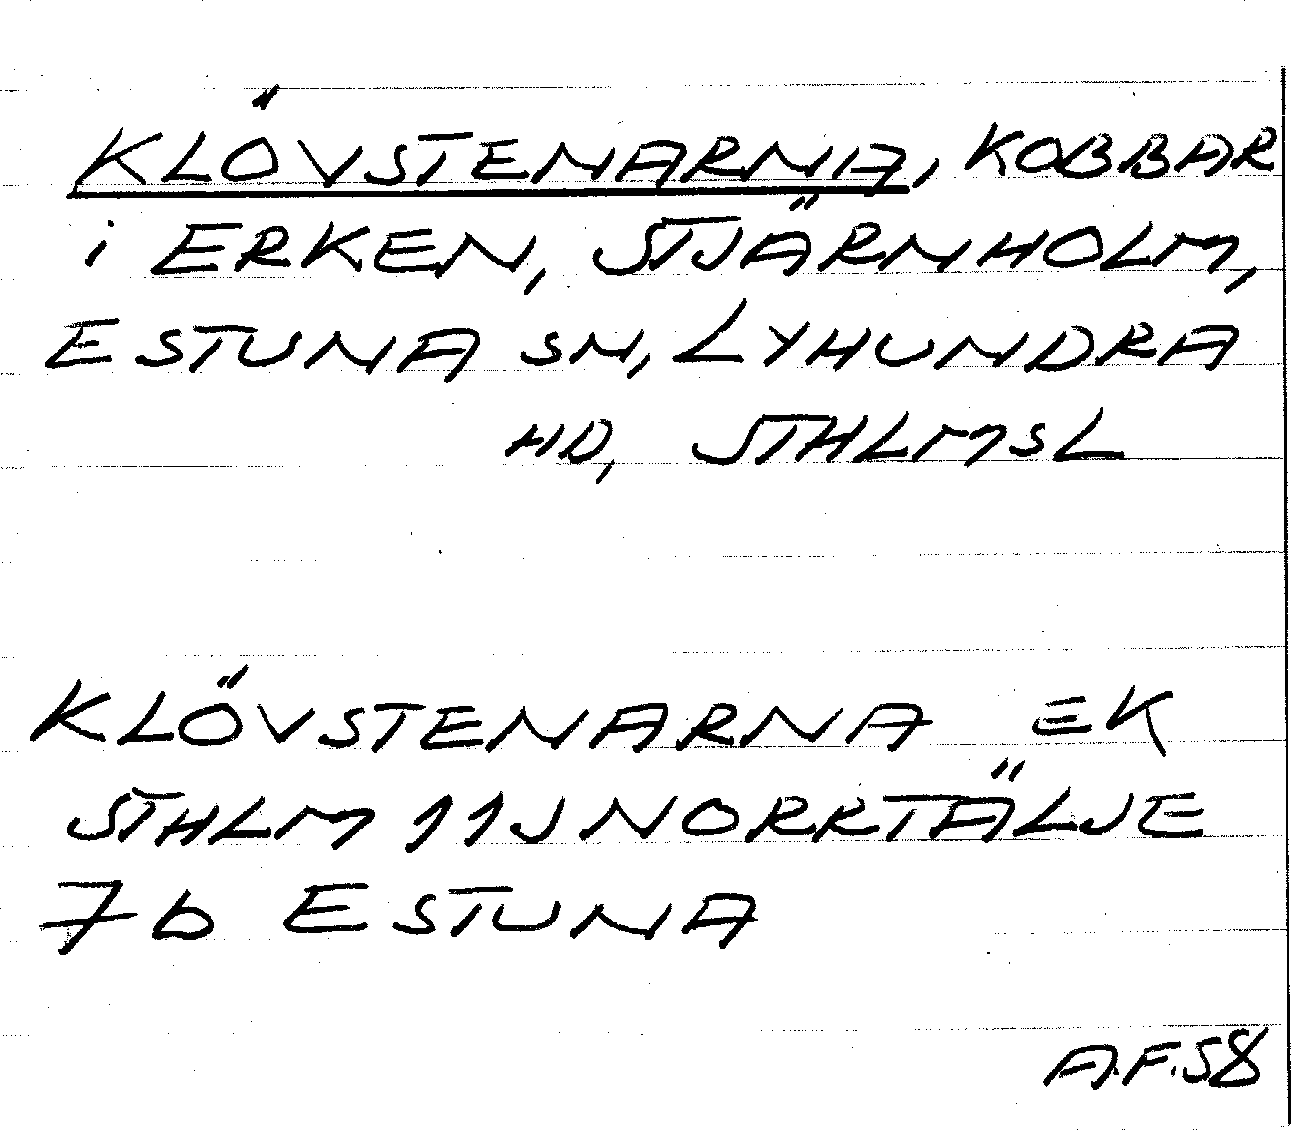 KLÖVSTENARNA, KOBBAR
i ERKEN, STJÄRNHOLM,
ESTUNA SN, LYHUNDRA
HD, STHLMSL
KLÖVSTENARNA EK
STHLM 11J NORRTÄLJE
7b ESTUNA
A.F.58